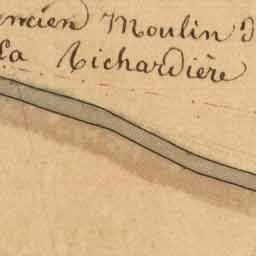 ancien Moulin d
La Richardière